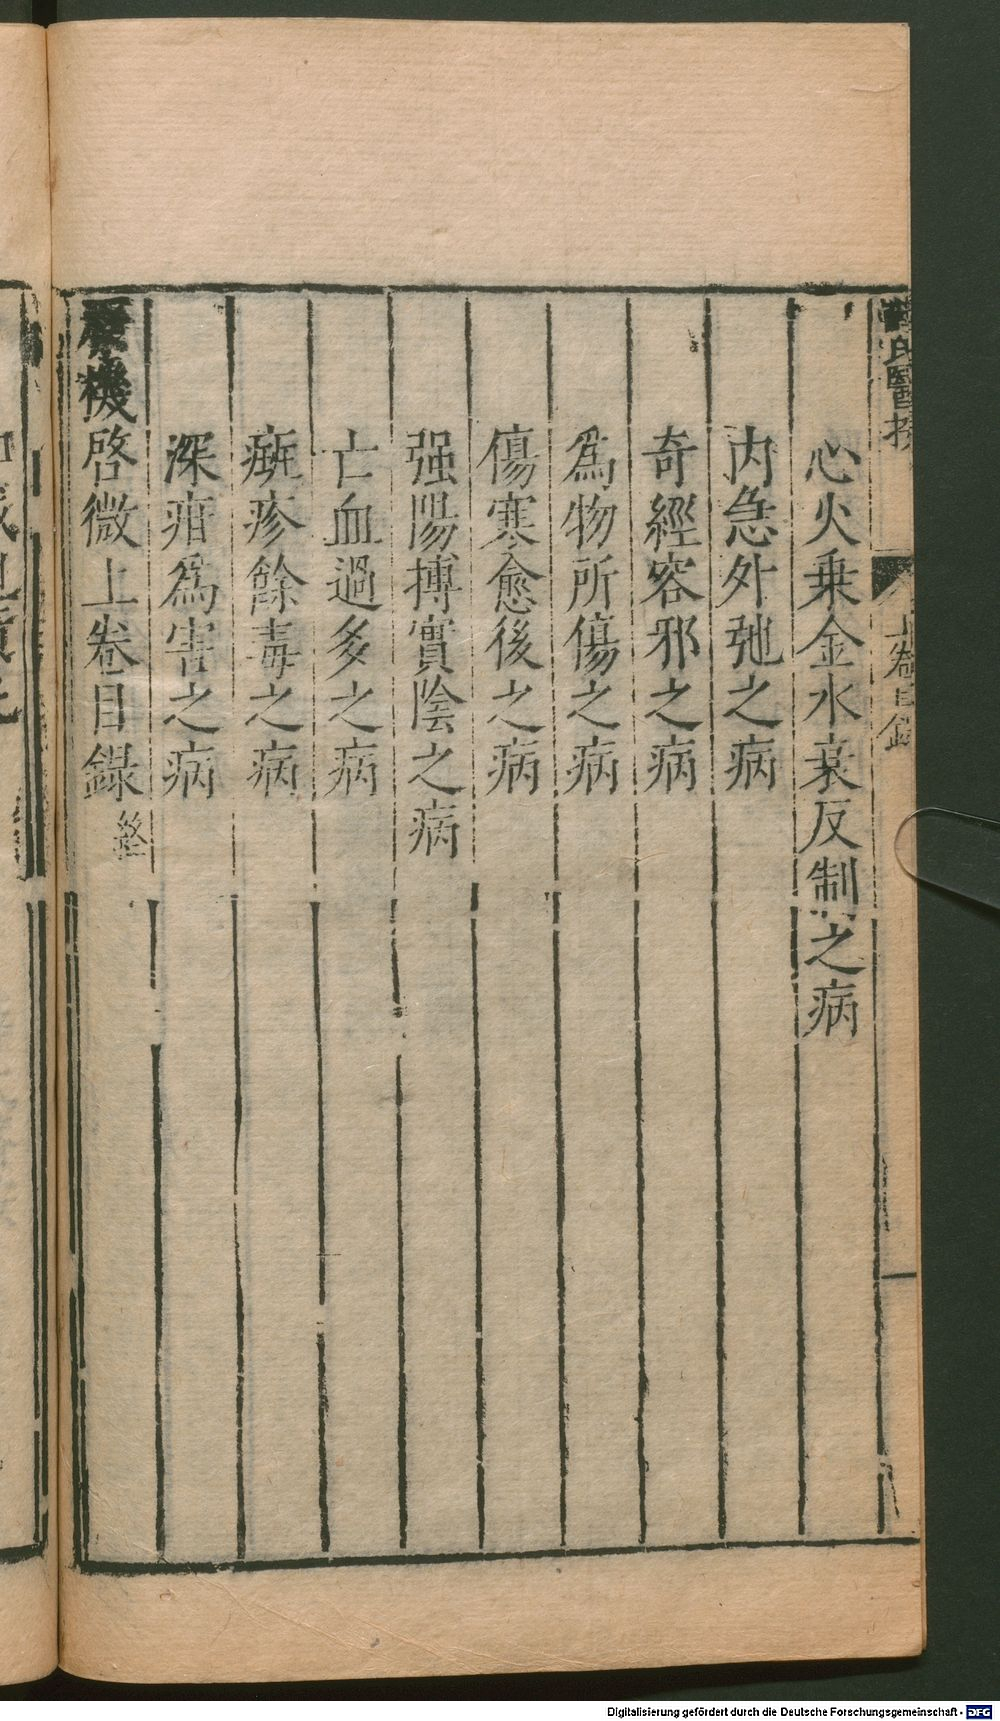 氏醫按
上卷目錄
心火乗金水衰反制之病
内急外弛之病
奇經客邪之病
爲物所傷之病
傷寒愈後之病
强陽搏實陰之病
亡血過多之病
癍疹餘毒之病
深疳爲害之病
原機啓微上卷目錄終
Digitalisierung gefördert durch die Deutsche Forschungsgemeinschaft - DFG